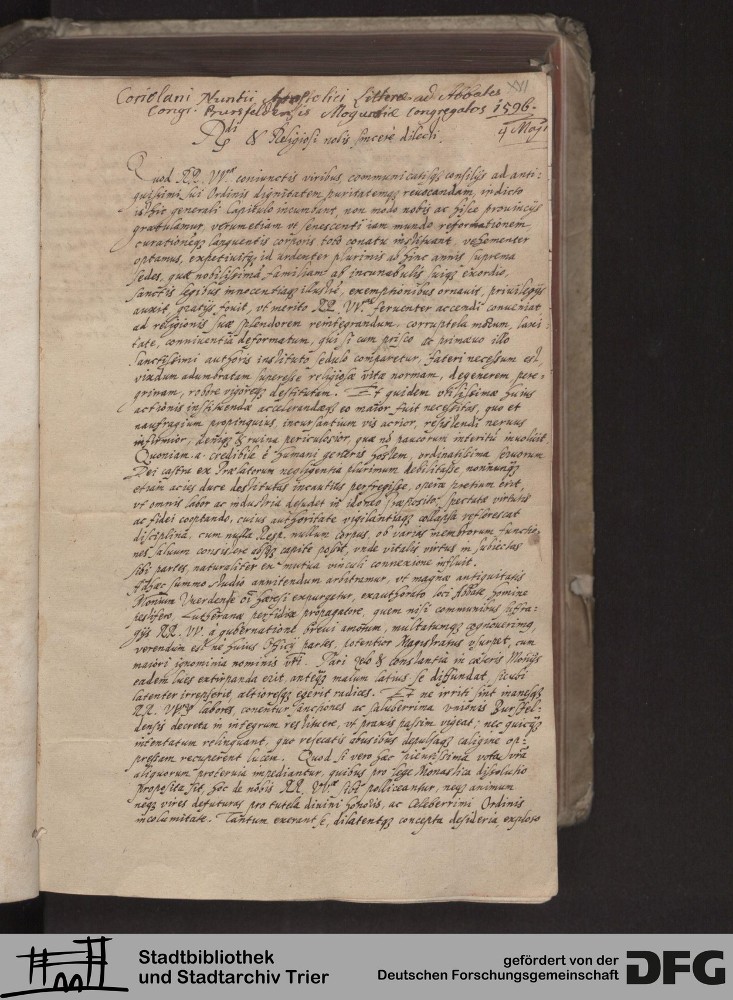 XVI
Coriolani Nuntii Apostolici Litterae ad Abbates
Congr. Bursfeldensis Moguntiae Congregatos 1596.
4 Maij
Rdi & Religiosi nobis sincerè dilecti.
Quod RR. VV. coniunctis viribus, communicatisq; consilijs ad anti-
quissimi sui Ordinis dignitatem, puritatemq; reuocandam, indicto
isthic generali Capitulo incumbant, non modo nobis ac hisce prouincijs
gratulamur, verumetiam vt senescenti iam mundo reformationem
curationemq; languentis corporis toto conatu instituant, vehementer
optamus, expetiuitq; id ardenter plurimis abhinc annis suprema
sedes, quae nobilissimã familiam ab incunabulis suiq; exordio,
sanctis legibus innocentiaq; illustrẽ, exemptionibus ornauit, priuilegijs
auxit, gratijs fouit, vt merito RR. VV. feruenter accendi conueniat
ad religionis suae splendorem reintegrandum, corruptela morum, laxi-
tate, conniuentia deformatum, qui si cum prisco ac primaeuo illo
sanctissimi authoris instituto sedulo comparetur, fateri necessum est,
vixdum adumbratam superesse religiosae vitae normam, degenerem, pere-
grinam, robore vigoreq; destitutam. Et quidem vtilissimae huius
actionis instituendae accelerandaeq; eo maior fuit necessitas, quo et
naufragium propinquius, incursantium vis acrior, resistendi neruus
infirmior, deniq; & ruina periculosior, quae nõ paucorum interitũ inuoluit.
Quoniam a. credibile ẽ humani generis hostem, ordinatissima seruorum
Dei castra ex Praelatorum negligentia plurimum debilitasse nonnunq;
etiam acies duce destitutas incautius perfregisse, operae pretium erit,
vt omnis labor ac industria desudet in idoneo Praeposito, spectatae virtutis
ac fidei cooptando, cuius authoritate vigilantiaq; collapsa reflorescat
disciplina, cum nulla Resp. nullum corpus, ob varias membrorum functio-
nes saluum consistere absq; capite possit, vnde vitalis virtus in subiectas
sibi partes naturaliter ex mutua vinculi connexione influit.
Adhaec summo studio annitendum arbitramur, vt magnae antiquitatis
Mon̄rium Vuerdense oĩ haeresi expurgetur, exauthorato loci Abbate homine
pestifero, Lutheranae perfidiae propagatore, quem nisi communibus suffra-
gijs RR. VV. à gubernatione breui amotum, multatumq; cognouerimus,
verendum est ne huius Officij partes, potentior Magistratus vsurpet, cum
maiori ignominia nominis vr̃i. Pari zelo & constantia in caeteris Mon̄rijs
eadem lues extirpanda erit, anteq; malum latius se diffundat, sicuti
latenter irrepserit, altioresq; egerit radices. Et ne irriti sint inanesq;
RR. VV. labores, conentur sanctiones ac saluberrima vnionis Bursfel-
densis decreta in integrum restituere, vt praxis passim vigeat, nec quicq;
intentatum relinquant, quo resecatis abusibus depulsaq; caligine op-
pressam recuperent lucem. Quod si vero haec pientissima vota vr̃a
aliquorum proteruia impediantur, quibus pro lege Monastica dissolutio
proposita sit, hoc de nobis RR. VV. sibi polliceantur, neq; animum
neq; vires defuturas pro tutela diuini honoris, ac Celeberrimi Ordinis
incolumitate. Tantum exerant se, dilatentq; concepta desideria, exploso
Stadtbibliothek
und Stadtarchiv Trier
gefördert von der
Deutschen Forschungsgemeinschaft
DFG